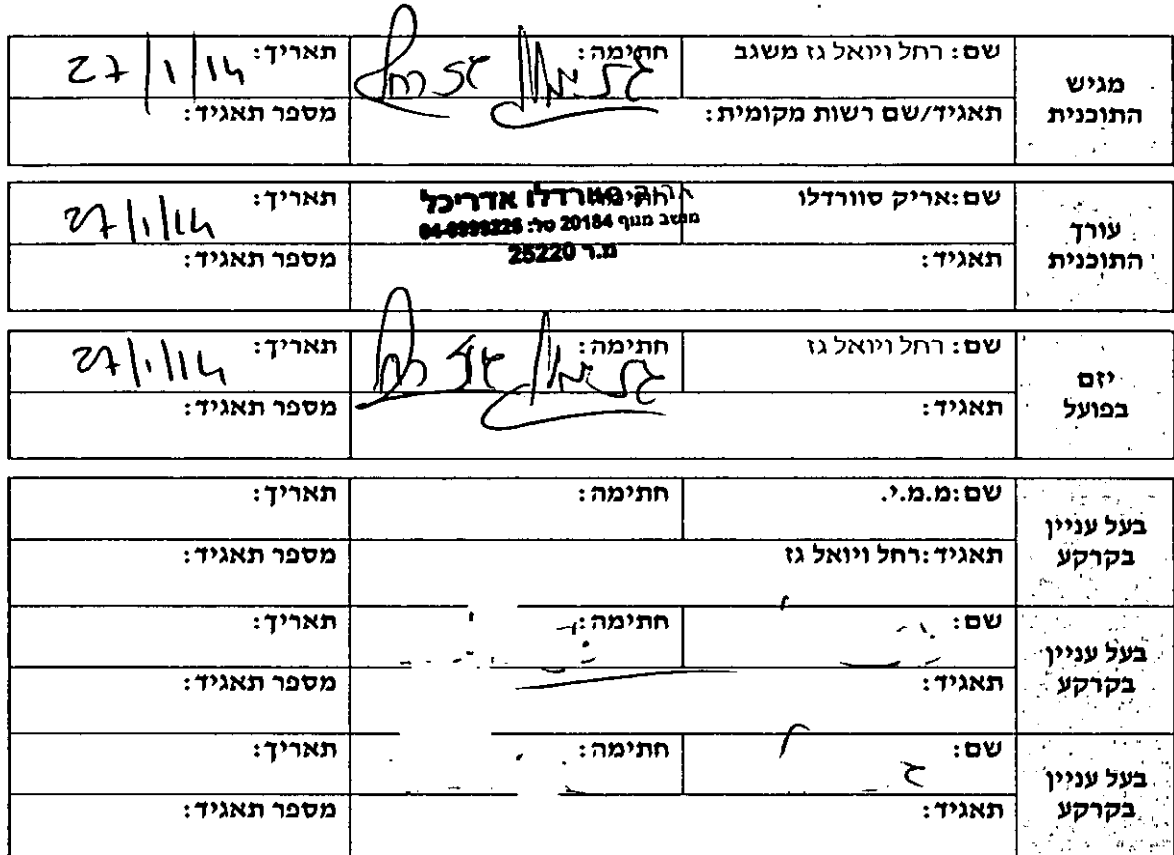 מגיש התוכנית
שם: רחל ויואל גז משגב
חתימה:
תאריך: 27/1/14
תאגיד/שם רשות מקומית:
מספר תאגיד:
עורך התוכנית
שם:אריק סוורדלו
חתימה:
סוורדלו אדריכל
מושב מנוף 20184
25220 מ.ר
תאריך: 27/1/14
תאגיד:
מספר תאגיד:
יזם בפועל
שם: רחל ויואל גז
חתימה:
תאריך: 27/1/14
תאגיד:
מספר תאגיד:
בעל עניין בקרקע
שם:מ.מ.י.
חתימה:
תאריך:
תאגיד:רחל ויואל גז
מספר תאגיד:
בעל עניין בקרקע
שם:
חתימה:
תאריך:
תאגיד:
מספר תאגיד:
בעל עניין בקרקע
שם:
חתימה:
תאריך:
תאגיד:
מספר תאגיד: